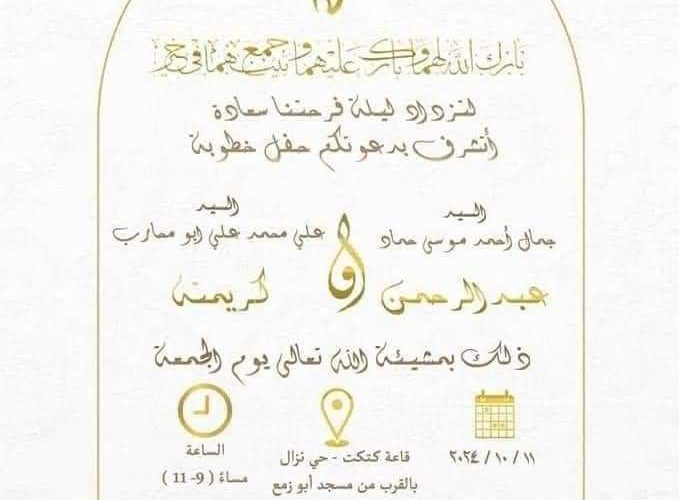 بارك الله لهما وبارك عليهما وجمع بينهما في خير
لتزداد ليلة فرحتنا سعادة
أتشرف بدعوتكم حفل خطوبة
السيد
جمال أحمد موسى حماد
السيد
علي محمد علي ابو محارب
عبدالرحمن
و
كريمته
ذلك بمشيئة الله تعالى يوم الجمعة
١١ / ١٠ / ٢٠٢٤
قاعة كتكت - حي نزال
بالقرب من مسجد أبو زمع
الساعة
مساءً ( 9- 11 )